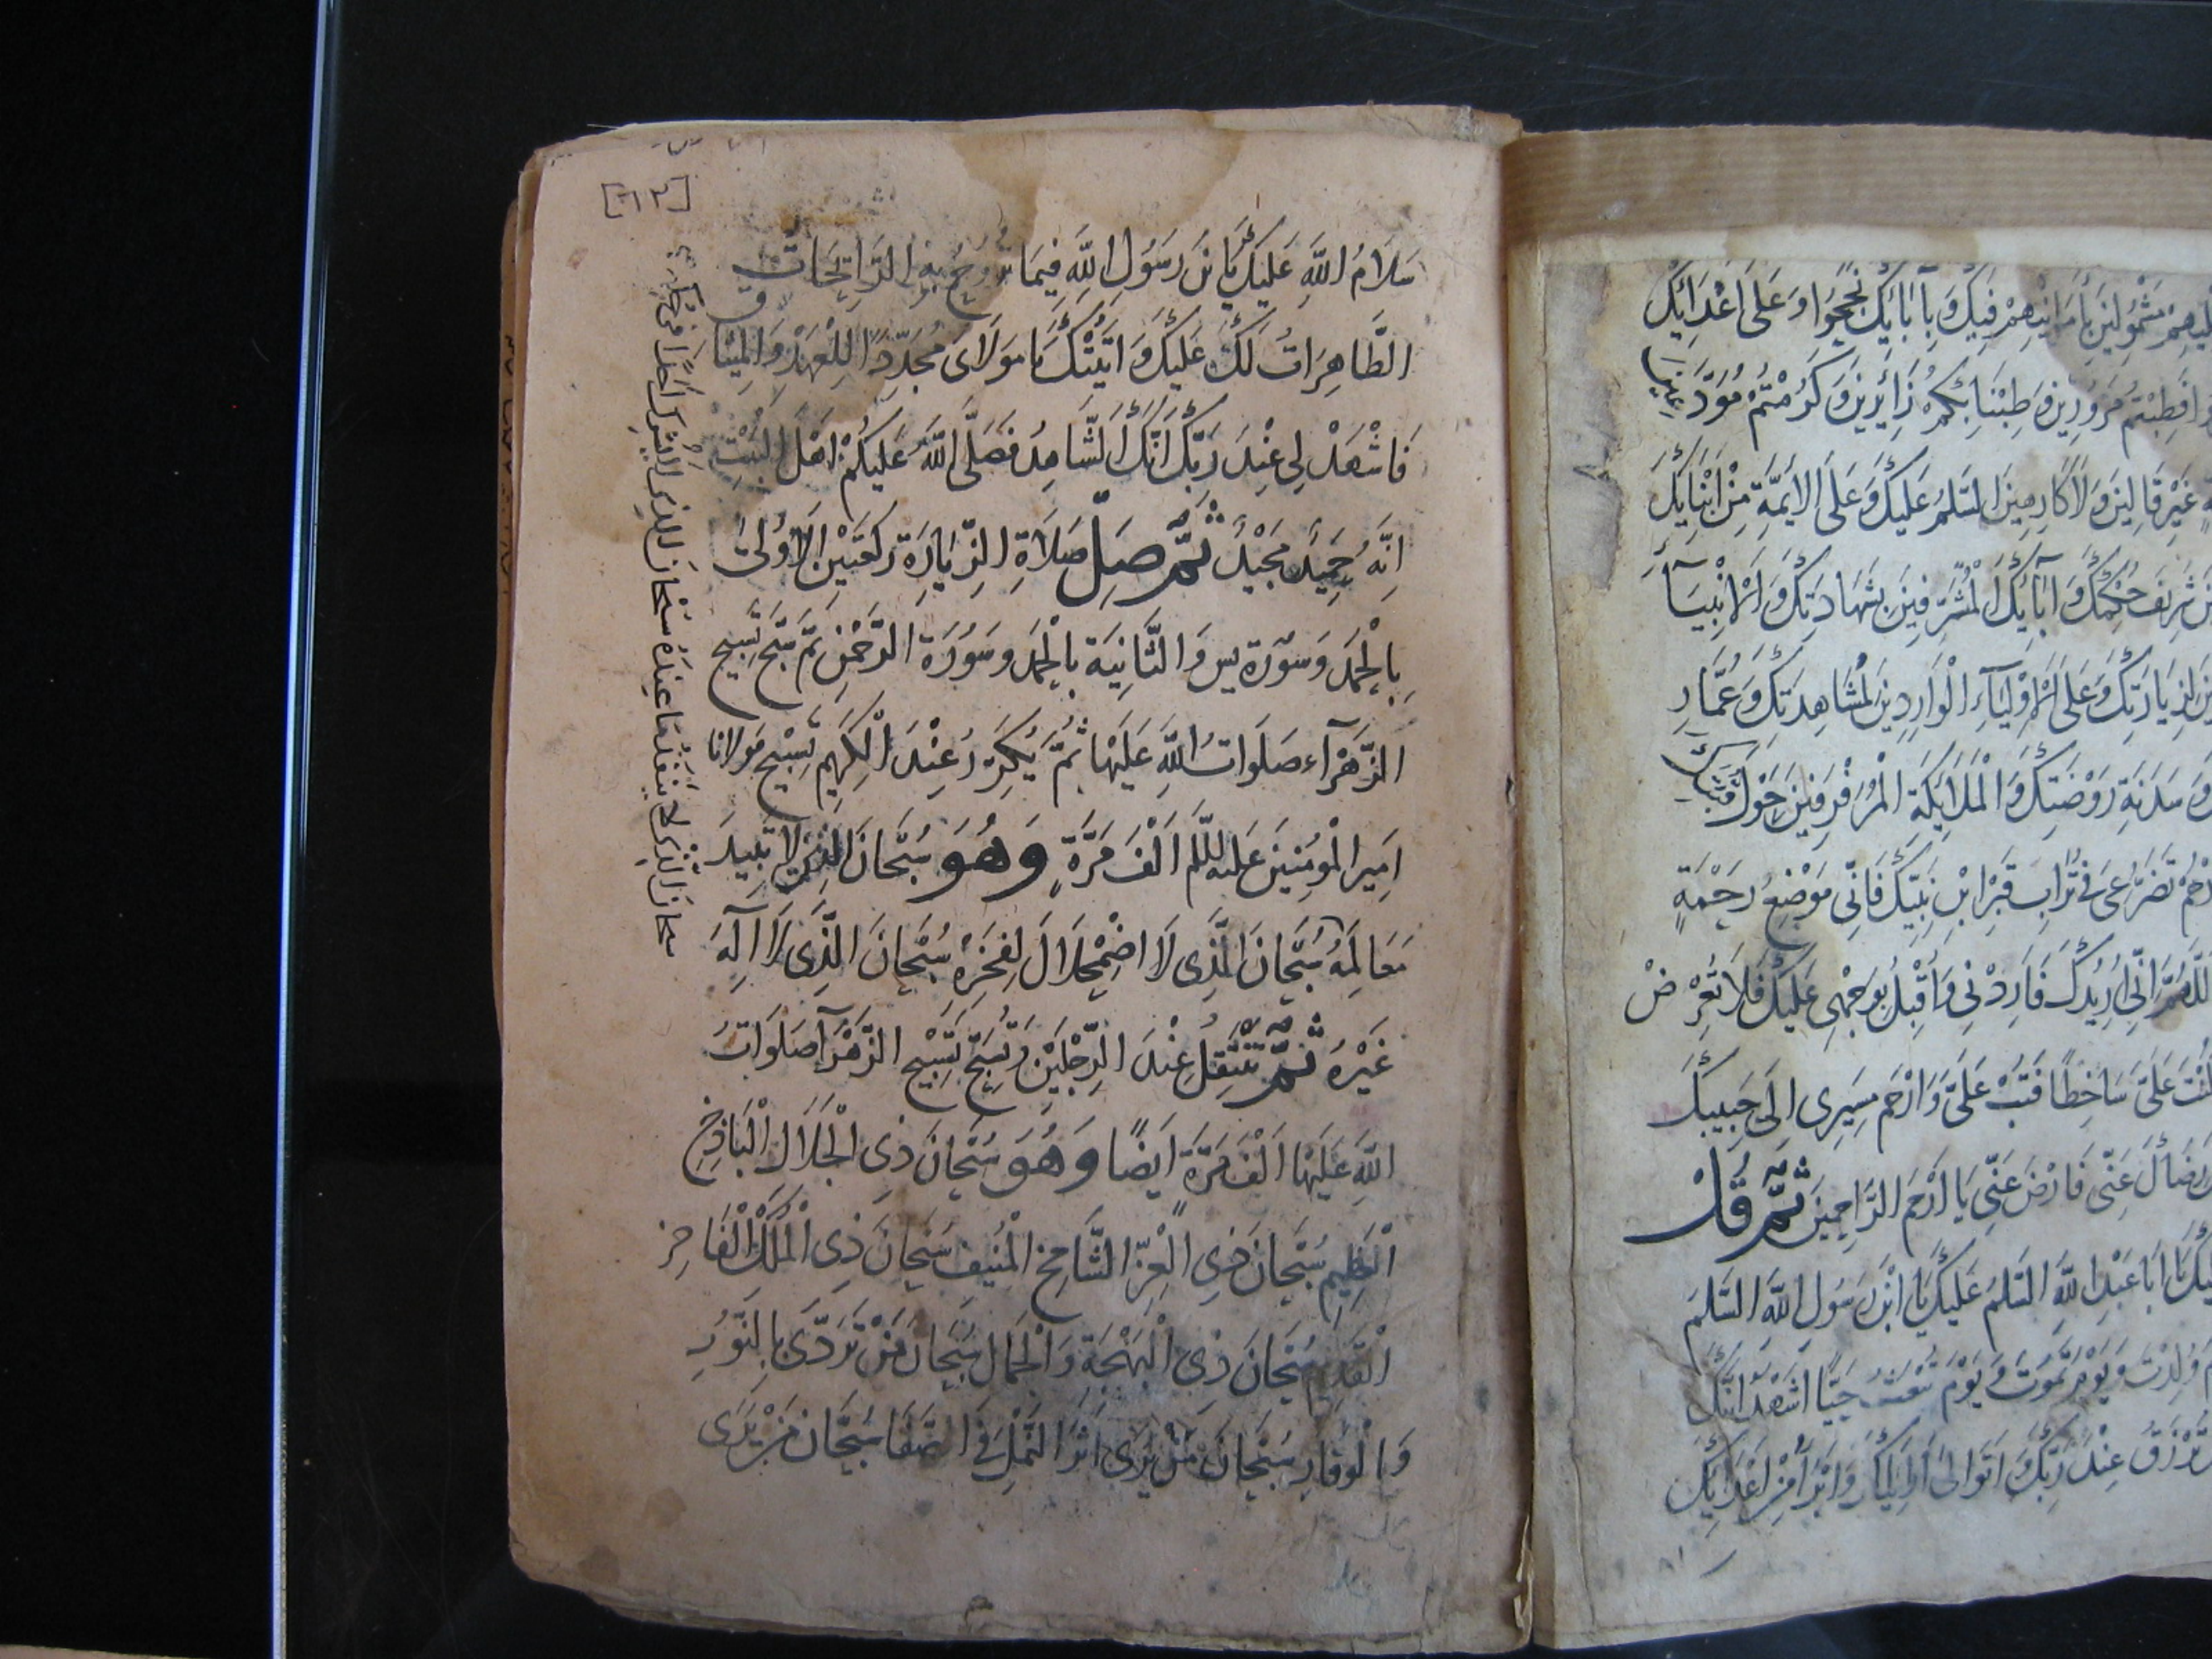 [١٣]
سَلَامُ اللَّهِ عَلَيْكَ يَا بْنَ رَسُولِ اللَّهِ فِيمَا تَرُوحُ بِهِ الرَّائِحَاتُ
الطَّاهِرَاتُ لَكَ وَعَلَيْكَ وَاَتَيْتُكَ يَا مَوْلَاىَ مُجَدِّدًا لِلْعَهْدِ وَالْمِيثَاقِ
فَاشْهَدْ لِى عِنْدَ رَبِّكَ اَنَّكَ الشَّاهِدُ فَصَلَّى اللَّهُ عَلَيْكُمْ اَهْلَ الْبَيْتِ
اِنَّهُ حَمِيدٌ مَجِيدٌ ثُمَّ صَلِّ صَلَاةِ الزِّيَارَة رَكْعَتَيْنِ الْاُولىٰ
بِالْحَمْدِ وَسُورَة يس وَالثَّانِيَة بِالْحَمْدِ وَسُورَة الرَّحْمٰنِ ثُمَّ سَبِّحْ تَسْبِيحَ
الزَّهْرَآءِ صَلَوَاتُ اللَّهِ عَلَيْهَا ثُمَّ يُكَرِّرُ عِنْدَ الْكَرِيمِ تَسْبِيحَ مَوْلَانَا
اَمِيرِ الْمُؤْمِنِينَ عَلَيْهِ السَّلَم اَلْفَ مَرَّةٍ وَهُوَ سُبْحَانَ الَّذِى لَا تَبِيدُ
مَعَالِمُهُ سُبْحَانَ الَّذِى لَا اضْمِحْلَالَ لِفَخْرِهِ سُبْحَانَ الَّذِى لَا اِلٰهَ
غَيْرُهُ ثُمَّ تَنْتَقِلُ عِنْدَ الرِّجْلَيْنِ وَتُسَبِّحُ تَسْبِيحَ الزَّهْرَآ صَلَوَاتُ
اللَّهِ عَلَيْهَا اَلْفَ مَرَّة اَيْضًا وَهُوَ سُبْحَانَ ذِى الْجَلَالِ الْبَاذِخِ
الْعَظِيمِ سُبْحَانَ ذِى الْعِزِّ الشَّامِخِ الْمُنِيفِ سُبْحَانَ ذِى الْمُلْكِ الْفَاخِرِ
الْقَدِيمِ سُبْحَانَ ذِى الْبَهْجَةِ وَالْجَمَالِ سُبْحَانَ مَنْ تَرَدَّى بِالنُّورِ
وَالْوَقَارِ سُبْحَانَ مَنْ يَرَى اَثَرَ النَّمْلِ فِى الصَّفَا سُبْحَانَ مَنْ يَرَى
سبحان الَّذِى لَا يَنْفَدُ مَا عِنْدَهُ سُبْحَانَ الَّذِى لَا يُشْرِكُ اَحَدًا فِى حُكْمِهِ
مَشْمُولِينَ بِاَمَانِيهِمْ فِيكَ وَبِآبَائِكَ نَجَحُوا وَعَلَى اَعْدَائِكَ
فَطِبْتُمْ مَزُورِينَ وَطِبْنَا بِكُمْ زَايِرِينَ وَكَرُمْتُمْ مُوَدَّعِينَ
غَيْرَ قَالِينَ وَلَا كَارِهِينَ السَّلَمُ عَلَيْكَ وَعَلَى الْاَئِمَّةِ مِنْ اَبْنَايِكَ
شَرِيفِ حُكْمِكَ وَآبَائِكَ الْمُشَرِّفِينَ بِشَهَادَتِكَ وَالْاَنْبِيَآءِ
لِزِيَارَتِكَ وَعَلَى الْاَوْلِيَآءِ الْوَارِدِينَ لِمُشَاهِدَتِكَ وَعُمَّارِ
وَسَدَنَةِ رَوْضَتِكَ وَالْمَلَائِكَة الْمُرَفْرِفِينَ حَوْلَ قُبَّتِكَ
تَضَرُّعِى فِى تُرَابِ قَبْرِ ابْنِ نَبِيِّكَ فَاِنِّى مَوْضِعُ رَحْمَةٍ
اَللَّهُمَّ اِنِّى اُرِيدُكَ فَارِدْنِى وَاُقْبِلُ بِوَجْهِى عَلَيْكَ فَلَا تُعْرِضْ
كُنْتَ عَلَىَّ سَاخِطًا فَتُبْ عَلَىَّ وَارْحَم مَسِيرِى اِلَى حَبِيبِكَ
رِضَاكَ عَنِّى فَارْضَ عَنِّى يَا اَرْحَمَ الرَّاحِمِينَ ثُمَّ قُلْ
يَا اَبَا عَبْدِ اللَّهِ السَّلَمُ عَلَيْكَ يَا ابْنَ رَسُولِ اللَّهِ السَّلَمُ
وُلِدْتَ وَيَوْمَ تَمُوتُ وَيَوْمَ تُبْعَثُ حَيًّا اَشْهَدُ اَنَّكَ
تُرْزَقُ عِنْدَ رَبِّكَ وَاَتَوَالىٰ وَلِيَّكَ وَاَبْرَأُ مِنْ اَعْدَائِكَ